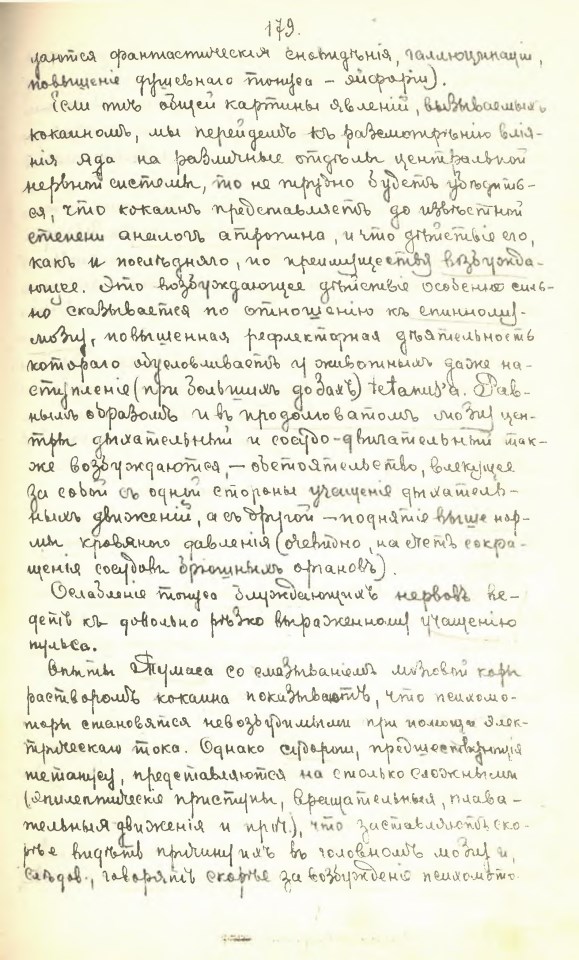 179.
чаются фантастическія сновидѣнія, галлюцинаціи,
повышеніе душевнаго тонуса – эйфорія).
Если отъ общей картины явленій, вызываемыхъ
кокаиномъ, мы перейдемъ къ разсмотрѣнію влія-
нія яда на различные отдѣлы центральной
нервной системы, то не трудно будетъ убѣдить-
ся, что кокаинъ представляетъ до извѣстной
степени аналогъ атропина, и что дѣйствіе его,
какъ и послѣдняго, по преимуществу возбужда-
ющее. Это возбуждающее дѣйствіе особенно силь-
но сказывается по отношенію къ спинному-
мозгу, повышенная рефлекторная дѣятельность
котораго обусловливаетъ у животныхъ даже на-
ступленіе (при большихъ дозахъ) tetanus'а. Рав-
нымъ образомъ и въ продолговатомъ мозгу цен-
тры дыхательный и сосудо-двигательный так-
же возбуждаются, – обстоятельство, влекущее
за собой съ одной стороны учащеніе дыхатель-
ныхъ движеній, а съ другой – поднятіе выше нор-
мы кровяного давленія (очевидно, на счетъ сокра-
щенія сосудовъ брюшныхъ органовъ).
Ослабленіе тонуса блуждающихъ нервовъ ве-
детъ къ довольно рѣзко выраженному учащенію
пульса.
Опыты Тумаса со смазываніемъ мозговой коры
растворомъ кокаина показываютъ, что психомо-
торы становятся невозбудимыми при помощи элек-
трическаго тока. Однако судороги, предшествующія
тетанусу, представляются на столько сложными
(эпилептическіе приступы, вращательныя, плава-
тельныя движенія и проч.), что заставляютъ ско-
рѣе видѣть причину ихъ въ головномъ мозгу и,
слѣдов., говорятъ скорѣе за возбужденіе психомото-